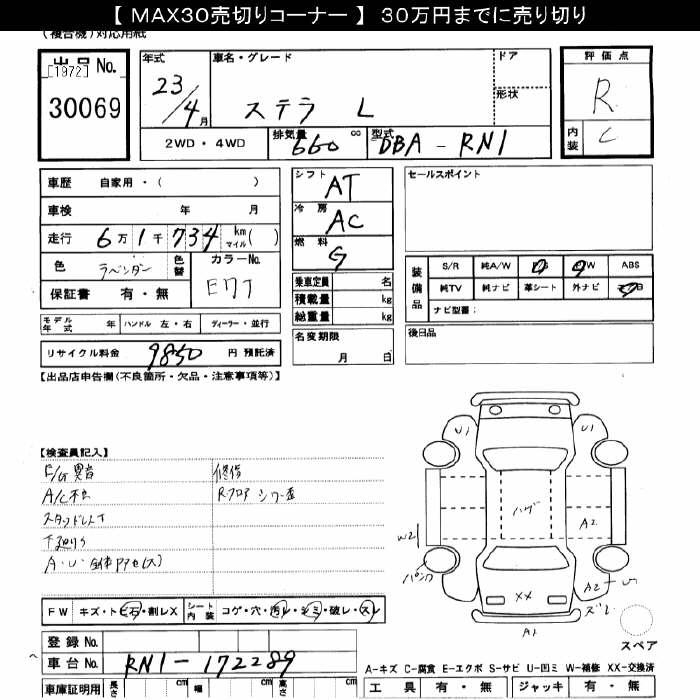 【 MAX30売切りコーナー 】 30万円までに売り切り
(複合機)対応用紙
出品 No.
[1972]
30069
年式
23/4月
車名・グレード
ステラ L
ドア
形状
評価点
R
内装
C
2WD・4WD
排気量
660 cc
型式
DBA-RN1
車歴 自家用・( )
車検 年 月
走行 6万1千734 km マイル( )
色 ラベンダー 色替
カラーNo.
E77
保証書 有・無
モデル年式 年 ハンドル 左・右 ディーラー・並行
リサイクル料金 9850 円 預託済
シフト
AT
冷房
AC
燃料
G
乗車定員 名
積載量 kg
総重量 kg
名変期限
月 日
セールスポイント
装備品
S/R 純A/W P/S P/W ABS
純TV 純ナビ 革シート 外ナビ
ナビ型番:
後日品
【出品店申告欄(不良箇所・欠品・注意事項等)】
【検査員記入】
E/G異音
A/C不良
スタッドレス
下廻りS
修復
Rフロア シワ 歪
U1
U1
ハゲ
A2
W2
パンク
A2
XX
A1
スペア
FW キズ・ト・ビ石・割レX
シート内装 コゲ・穴・汚レ・シミ・破レ・スレ
登録 No.
車台 No. RN1-172289
車庫証明用 長さ cm 幅 cm 高さ cm
A-キズ C-腐食 E-エクボ S-サビ U-凹ミ W-補修 XX-交換済
工具 有・無 ジャッキ 有・無